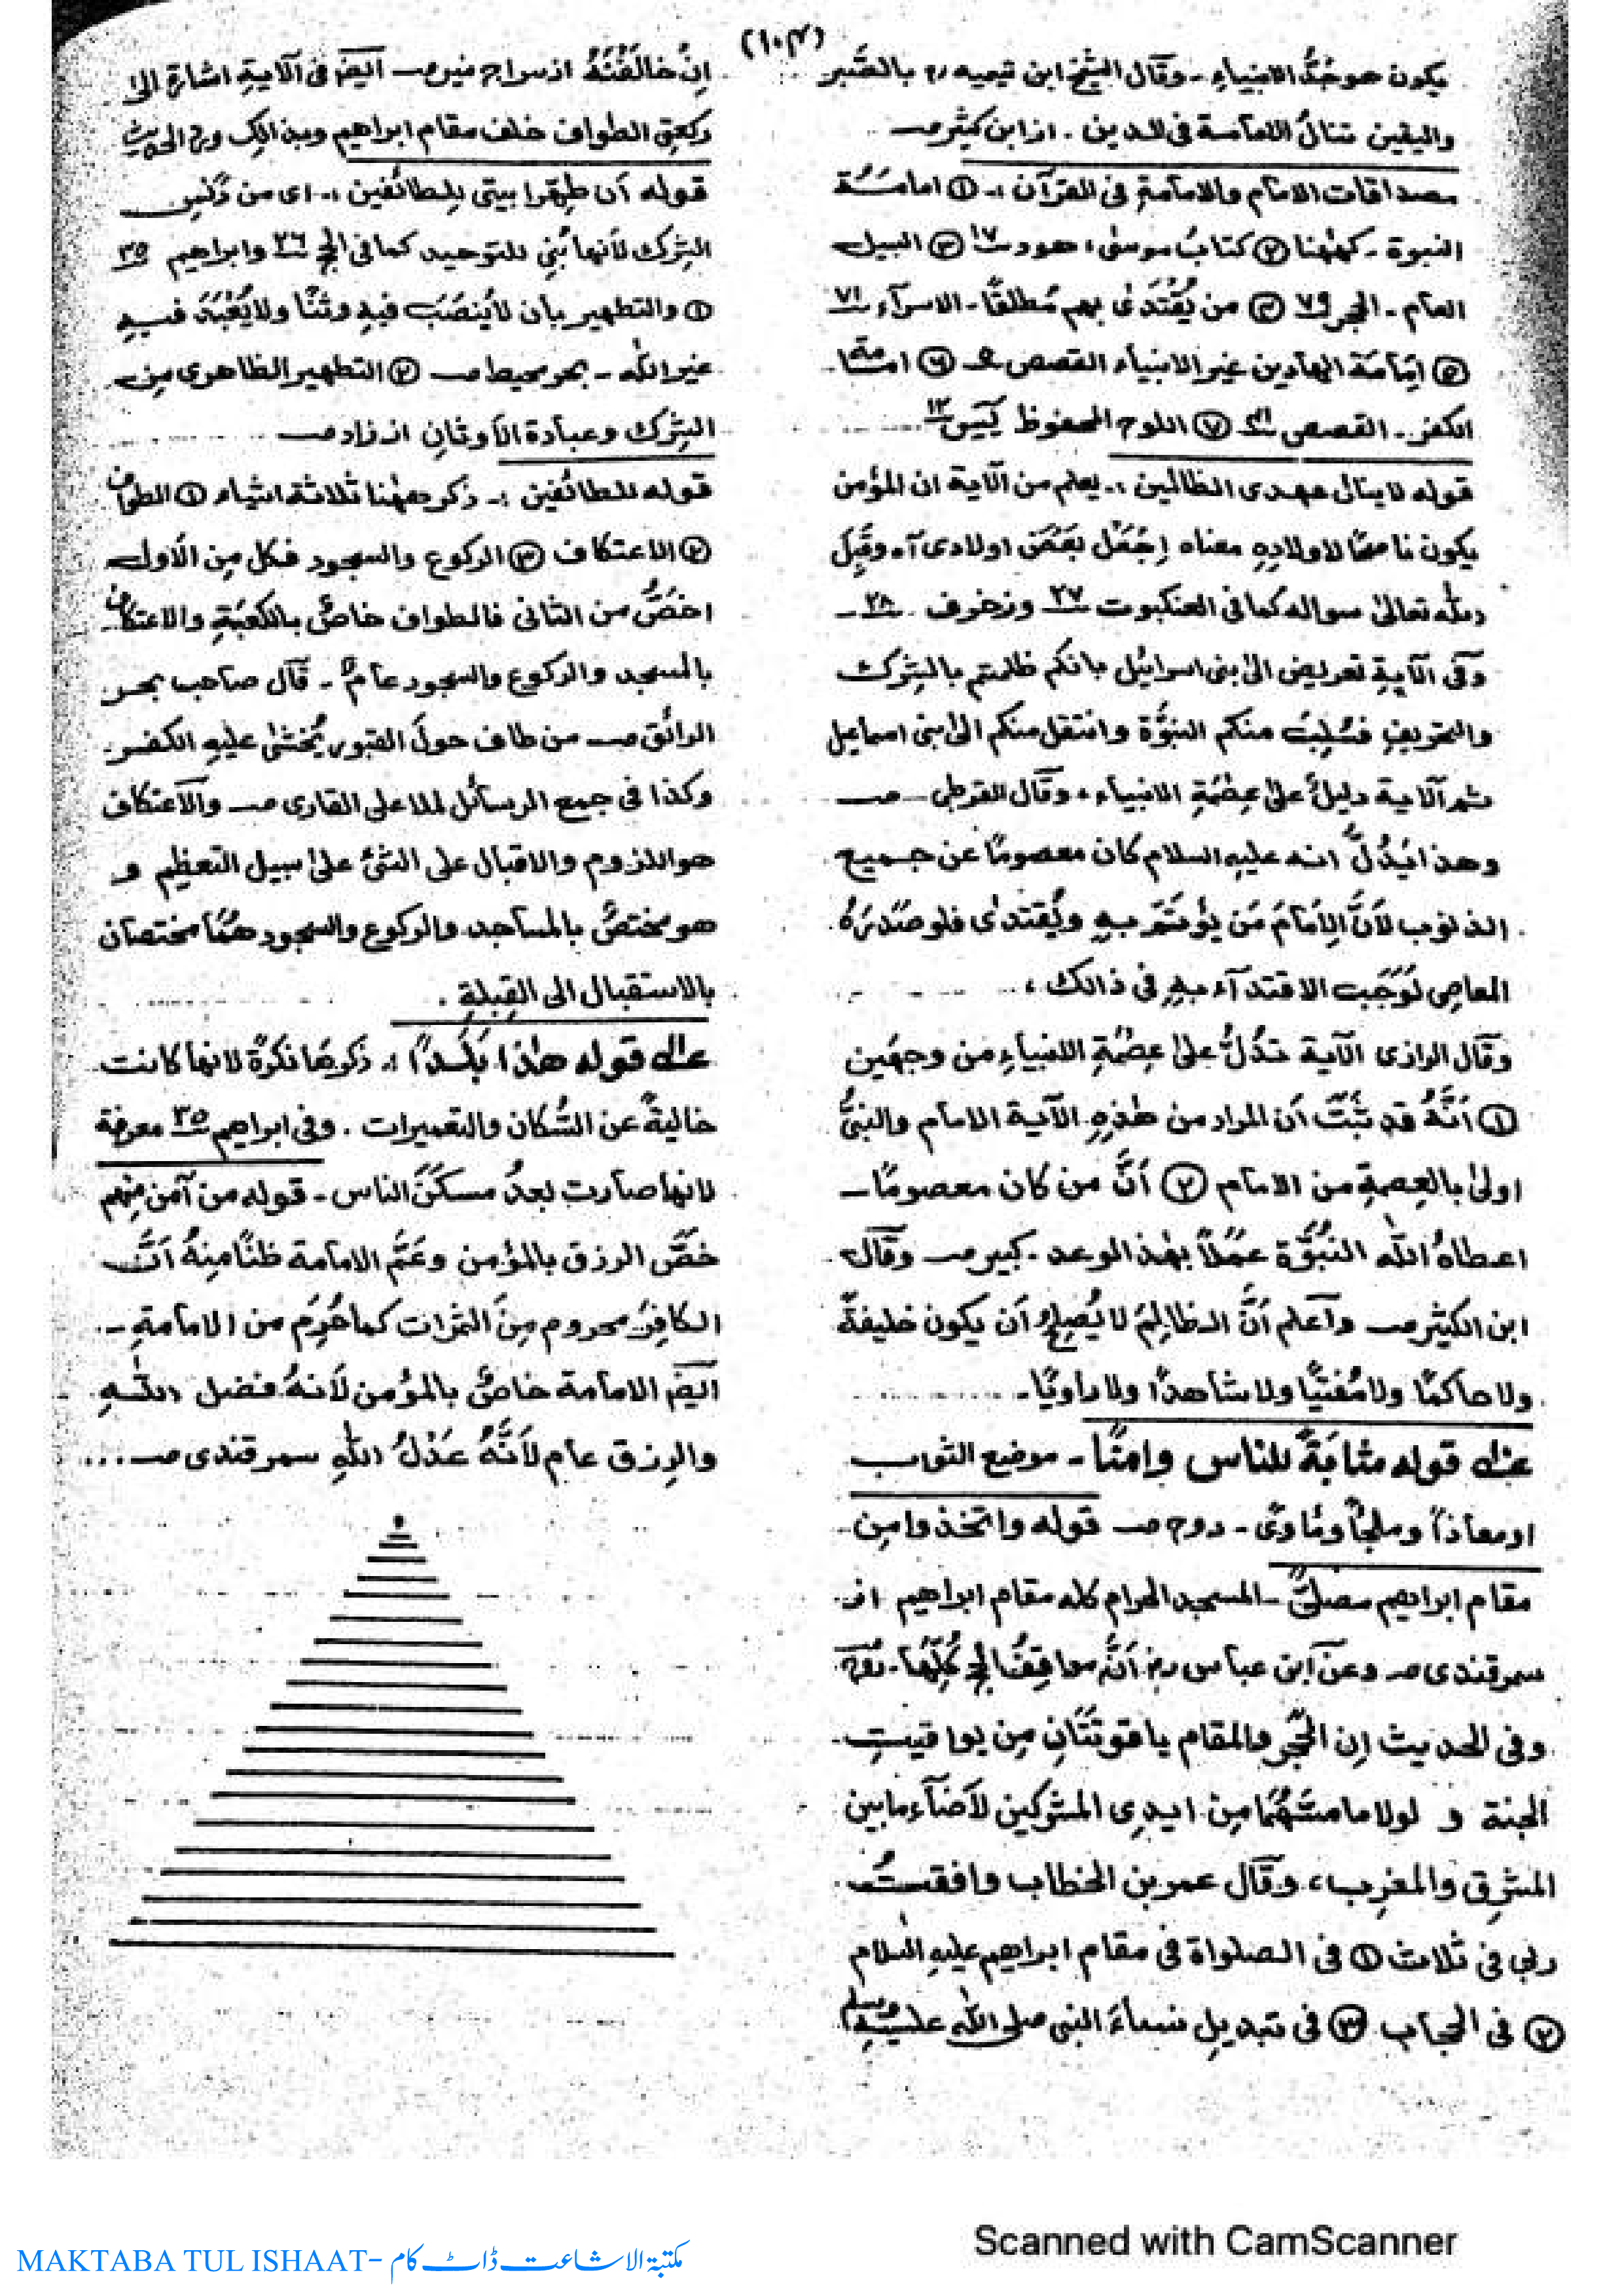 (١٠٣)
يكون هو جدُّ الانبياءِ ۔ وقال الشيخ ابن تيميه رح بالصَّبر
واليقين تنالُ الامامة فى الدين ۔ از ابن كثير صـ
مصداقات الامام والامامةِ فى القرآن :۔ ① امامَةُ
النبوة ۔ كهٰهنا ② كتابُ موسىٰ، هود ١٧ ③ السبيل
العام ۔ الحجر ٧٩ ④ من يُقْتَدىٰ بهم مُطلقًا ۔ الاسرآء ٧١
⑤ اِمَامَة الهادين غير الانبياء القصص ⑥ امامة
الكفر ۔ القصص ٤١ ⑦ اللوح المحفوظ يٰسٓ ١٢
قوله لا ينال عهدى الظالمين :۔ يعلم من الآية ان المؤمن
يكون ناصحًا لاولادِهِ معناه اِجْعَل بَعْضَ اولادى آه وقَبِلَ
الله تعالىٰ سواله كما فى العنكبوت ٢٧ وزخرف ٢٨ ۔
وفى الآيةِ تعريض الىٰ بنى اسرائيل بانكم ظلمتم بالشِّرك
والتحريفِ فسُلِبَت منكم النبُوَّة وانتقل منكم الىٰ بنى اسماعيل
ثم الآية دليلٌ علىٰ عِصْمَةِ الانبياء، وقال القرطبى صـ
وهذا يَدُلُّ انه عليهِ السلام كان معصومًا عن جميع
الذنوب لاَنَّ الاِمَامَ مَن يؤتَمَّ بهٖ ويُقتدىٰ فلو صَدَرَهُ
المعاصِى لَوَجَبَ الاقتدآء بهٖ فى ذالك ،
وقال الرازى الآية تدُلُّ علىٰ عِصْمَةِ الانبياءِ من وجهَين
① اَنَّهٗ قد ثَبَتَ اَن المراد من هٰذِهِ الآية الامام والنبىُّ
اولىٰ بالعِصمةِ من الامام ② اَنَّ من كان معصومًا ۔
اعطاهُ اللّٰه النبُوَّة عمَلاً بهٰذ الوعد ۔ كبير صـ وقال
ابن الكثير صـ وآعلم اَنَّ الظالِمَ لا يُصلِحُ اَن يكون خليفةً
ولا حاكمًا ولا مُفتيًا ولا شاهدًا ولا راويًا ۔
قوله مثابَةً للناس وامنًا ۔ موضع الثواب
او معاذاً وملجأً ومأوىً ۔ روح صـ قوله واتخذوا مِن
مقام ابراهيم مصلىًّ ۔ المسجد الحرام كله مقام ابراهيم از
سمرقندى صـ وعن ابن عباس رض اَنَّه مواقِفُ الحج كُلِّهَا ۔ روح
وفى الحديث اِن الحَجر والمقام ياقوتَتَانِ مِن يواقيتِ
الجنة و لولا ما مسَّهُمَا مِن ايدِى المشركين لاَضآء ما بين
المشرِق والمغرِب، وقال عمر بن الخطاب وافقتُ
ربى فى ثلاث ① فى الصلواة فى مقام ابراهيم عليهِ السلام
② فى الحجاب ③ فى تبديلِ نساءَ النبى صلى اللّٰه عليه وسلم
اِنْ خالَفْنَهٗ از سراج منير صـ ايضًا فى الآيةِ اشارة الىٰ
ركعتى الطواف خلف مقام ابراهيم وبذالك ورد الحديث
قوله اَن طهِّرا بيتى لِلطائفين :۔ اى من دَنَسِ
الشِّرك لاَنها بُنِىَ للتوحيد كما فى الحج ٢٦ وابراهيم ٣٥
① والتطهير بأن لا يُنصَبَ فيهِ وثَنًا ولا يُعْبَدَ فيهِ
غير اللّٰه ۔ بحر محيط صـ ② التطهير الظاهرى مِن
الشِّرك وعبادة الاَوثانِ از زاد صـ
قوله للطائفين :۔ ذكر هٰهنا ثلاثة اشياء ① الطواف
② الاعتكاف ③ الركوع والسجود فكل مِن الاول
اخصُّ من الثانى فالطواف خاصٌ بالكعبَةِ والاعتكاف
بالمسجد والركوع والسجود عامٌ ۔ قال صاحب بحر
الرائق صـ من طاف حولَ القبور يُخشىٰ عليهِ الكفر
وكذا فى جمع الرسائل لملا على القارى صـ والاعتكاف
هو اللزوم والاقبال على الشئ علىٰ سبيل التعظِيم و
هو مختصٌ بالمساجد والركوع والسجود همَا مختصان
بالاستقبال الى القِبلةِ .
قوله هٰذا بَلَدًا :۔ ذكرهَا نكرةً لانها كانت
خاليةً عن السُّكان والتعميرات . وفى ابراهيم ٣٥ معرفة
لانها صارت بعدُ مسكَنَ الناس ۔ قوله من آمن مِنهم
خصَّ الرزق بالمؤمن وعَمَّ الامامة ظنًا مِنهُ اَنَّ
الكافِرَ محروم مِنَ الثمرات كما حُرِمَ من الامامةِ ۔
ايضًا الامامة خاصٌ بالمؤمن لاَنهُ فضل اللّٰهِ
والرِزق عام لاَنَّهٗ عَدْلُ اللّٰهِ سمرقندى صـ ...
Scanned with CamScanner
MAKTABA TUL ISHAAT- مکتبة الاشاعت ڈاٹ کام